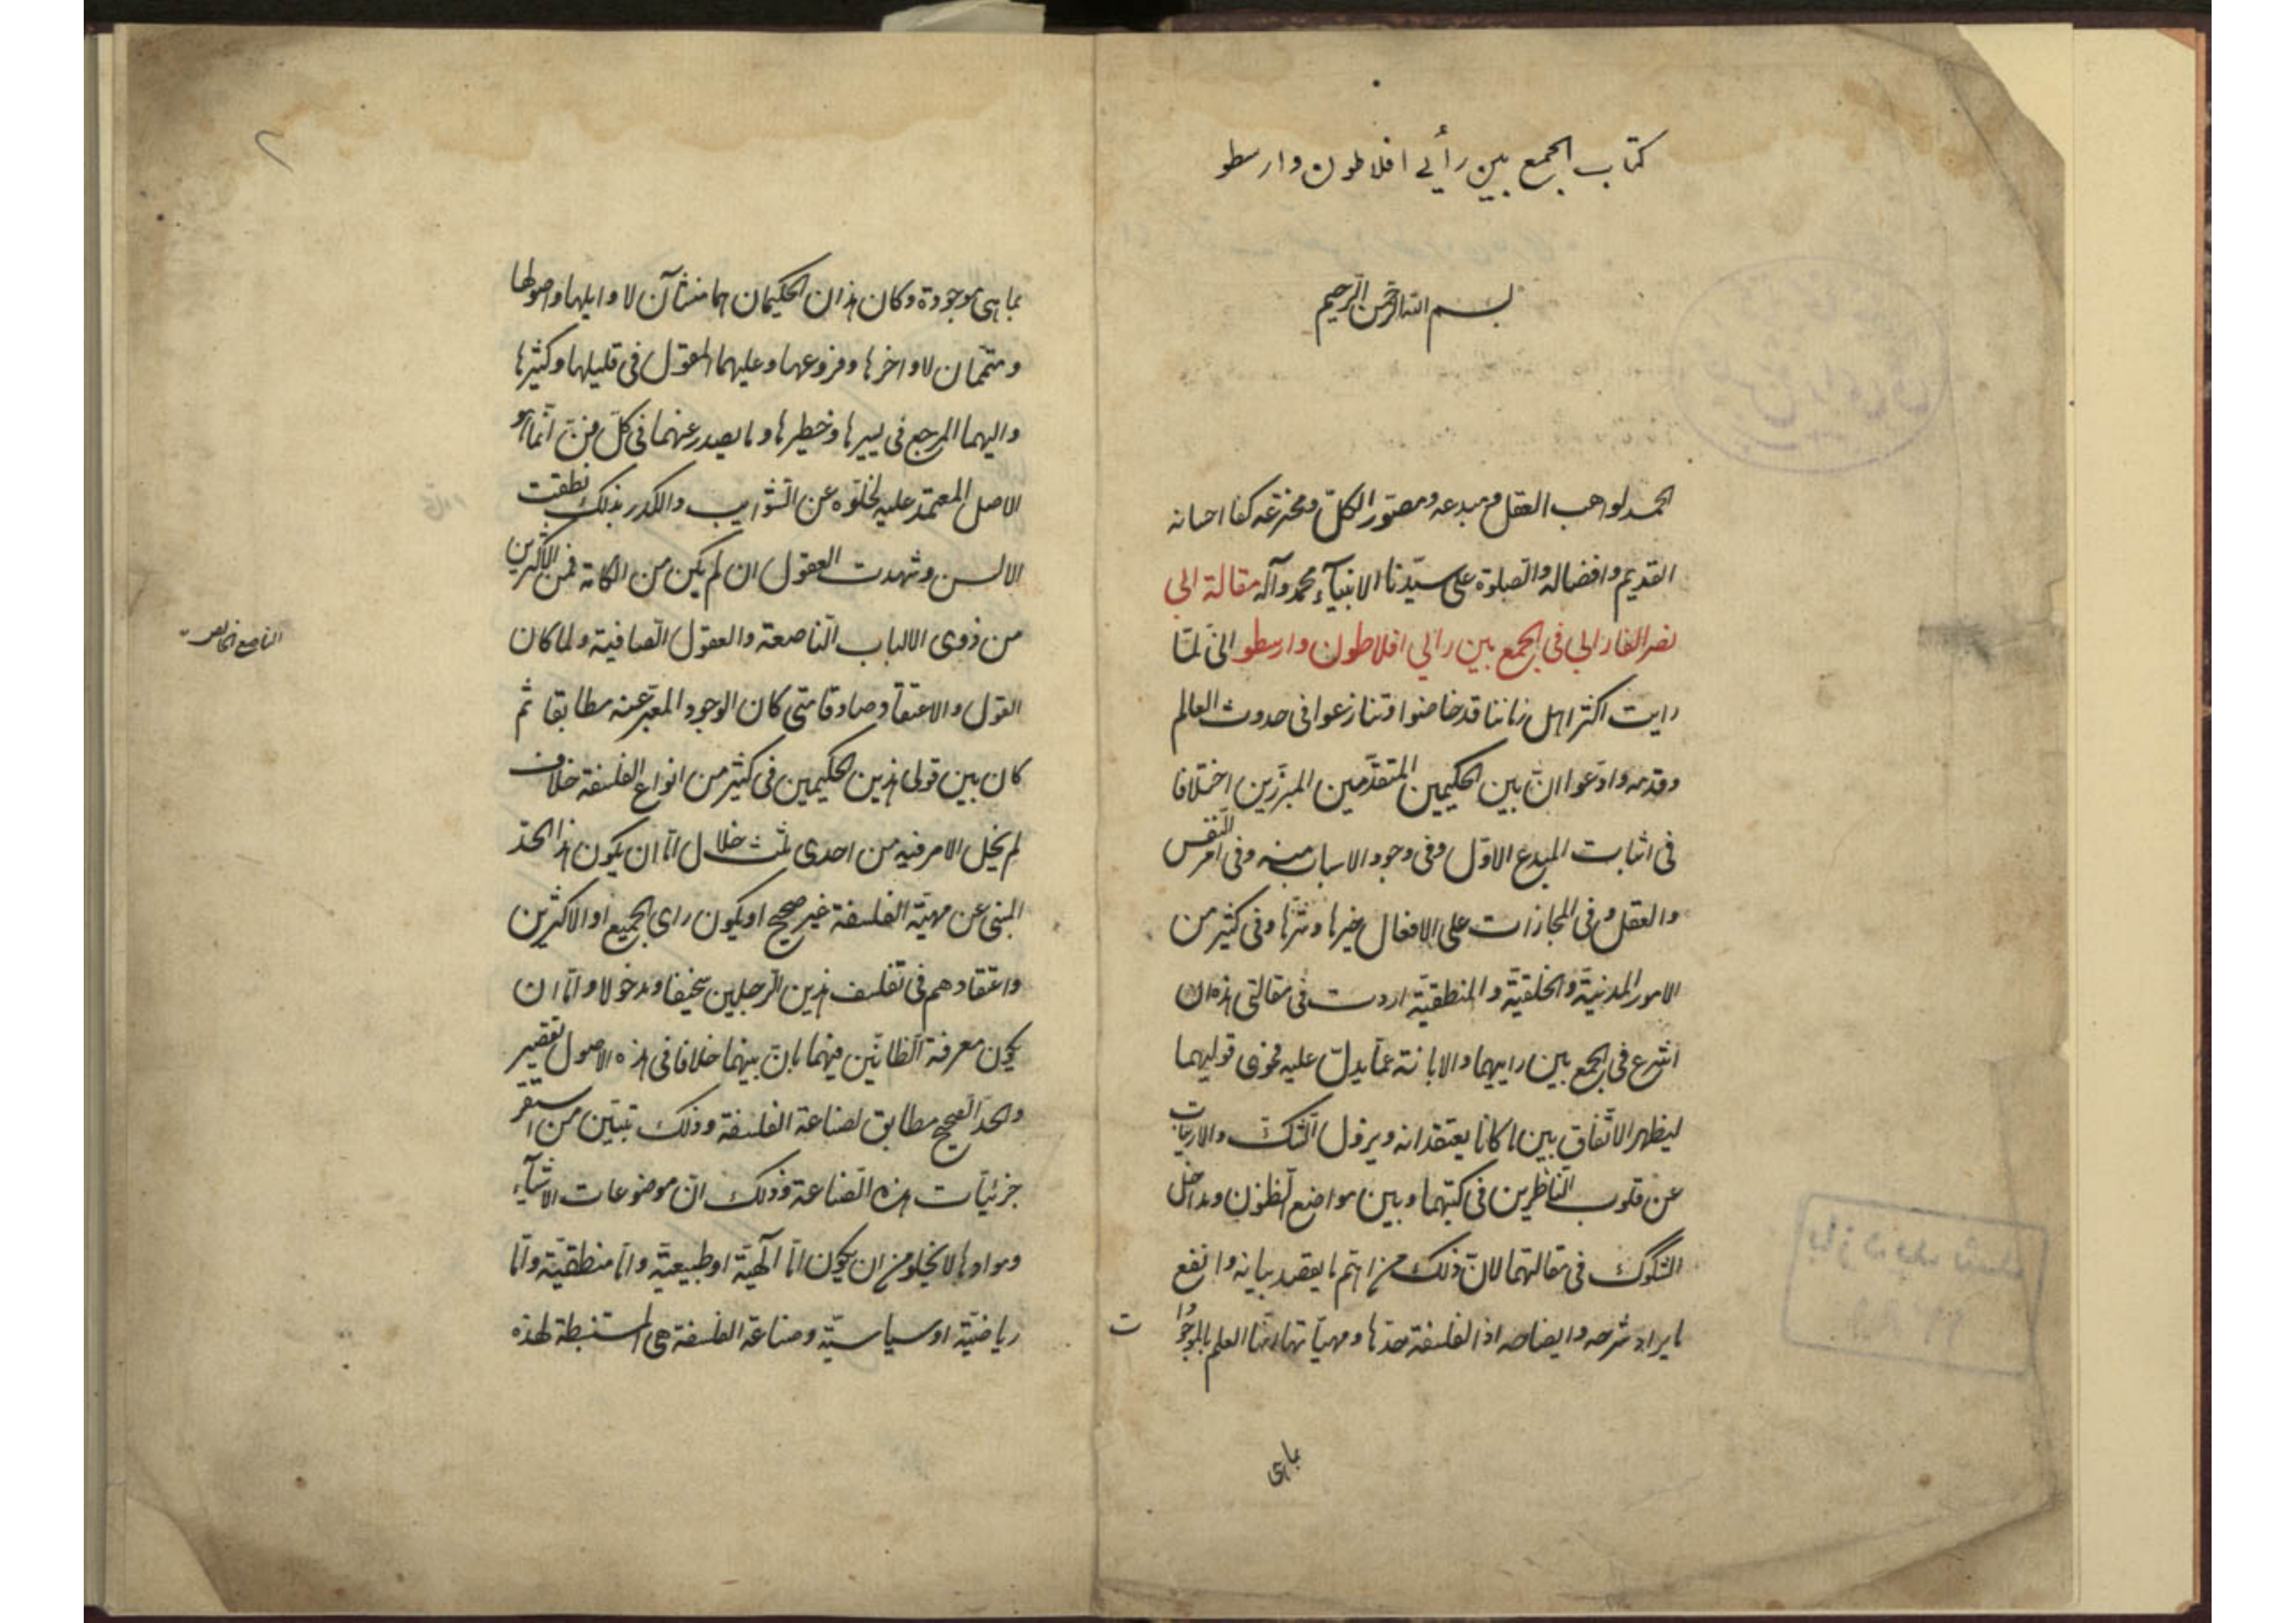 كتاب الجمع بين رأيي افلاطون وارسطو
بسم الله الرحمن الرحيم
الحمد لواهب العقل ومبدعه ومصور الكلّ ومخترعه كفا احسانه
القديم وافضاله والصلوة على سيّدنا الانبيآء محمد وآله مقالة ابي
نصر الفارابي في الجمع بين رايي افلاطون وارسطو انى لمّا
رايت اكثر اهل زماننا قد خاضوا وتنازعوا فى حدوث العالم
وقدمه وادّعوا انّ بين الحكيمين المتقدّمين المبرّزين اختلافا
فى اثبات المبدع الاوّل وفى وجود الاسباب منه وفى امر النفس
والعقل وفى المجازات على الافعال خيرها وشرّها وفى كثير من
الامور المدنيّة والخلقيّة والمنطقيّة اردت فى مقالتى هذه ان
اشرع فى الجمع بين راييهما والابانة عمّا يدلّ عليه فحوى قوليهما
ليظهر الاتّفاق بين ما كانا يعتقدانه ويزول الشكّ والارتياب
عن قلوب الناظرين فى كتبهما وبين مواضع الظنون ومداخل
الشكوك فى مقالتهما لانّ ذلك من اهمّ ما يقصد بيانه وانفع
ما يراد شرحه وايضاحه اذ الفلسفة حدّها ومهيّاتها انّها العلم بالموجودات
بماهى
٢
بماهى موجودة وكان هذان الحكيمان هما منشآن لاوايلها واصولها
ومتمّمان لاواخرها وفروعها وعليهما المعوّل فى قليلها وكثيرها
واليهما المرجع فى يسيرها وخطيرها وما يصدر عنهما فى كلّ فنّ انّما هو
الاصل المعتمد عليه لخلوّه عن الشّوايب والكدر بذلك نطقت
الالسن وشهدت العقول ان لم يكن من الكافة فمن الاكثرين
من ذوى الالباب النّاصعة والعقول الصافية ولما كان
القول والاعتقاد صادقا متى كان الوجود المعبّر عنه مطابقا ثم
كان بين قولى هذين الحكيمين فى كثير من انواع الفلسفة خلاف
لم يخل الامر فيه من احدى ثلث خلال امّا ان يكون هذا الحدّ
المبنى عن مهيّة الفلسفة غير صحيح او يكون راى الجميع او الاكثرين
واعتقادهم فى تفلسف هذين الرجلين سخيفا ومدخولا وامّا ان
يكون معرفة الظانّين فيهما بانّ بينهما خلافا فى هذه الاصول تقصير
والحد الصحيح مطابق لصناعة الفلسفة وذلك تبيّن من استقر
جزئيّات هذه الصّناعة وذلك انّ موضوعات الاشيآء
وموادها لا يخلو من ان يكون امّا الٓهيّة او طبيعيّة وامّا منطقيّة وامّا
رياضيّة او سياسيّة وصناعة الفلسفة هى المستنبطة لهذه
الناصع الخالص